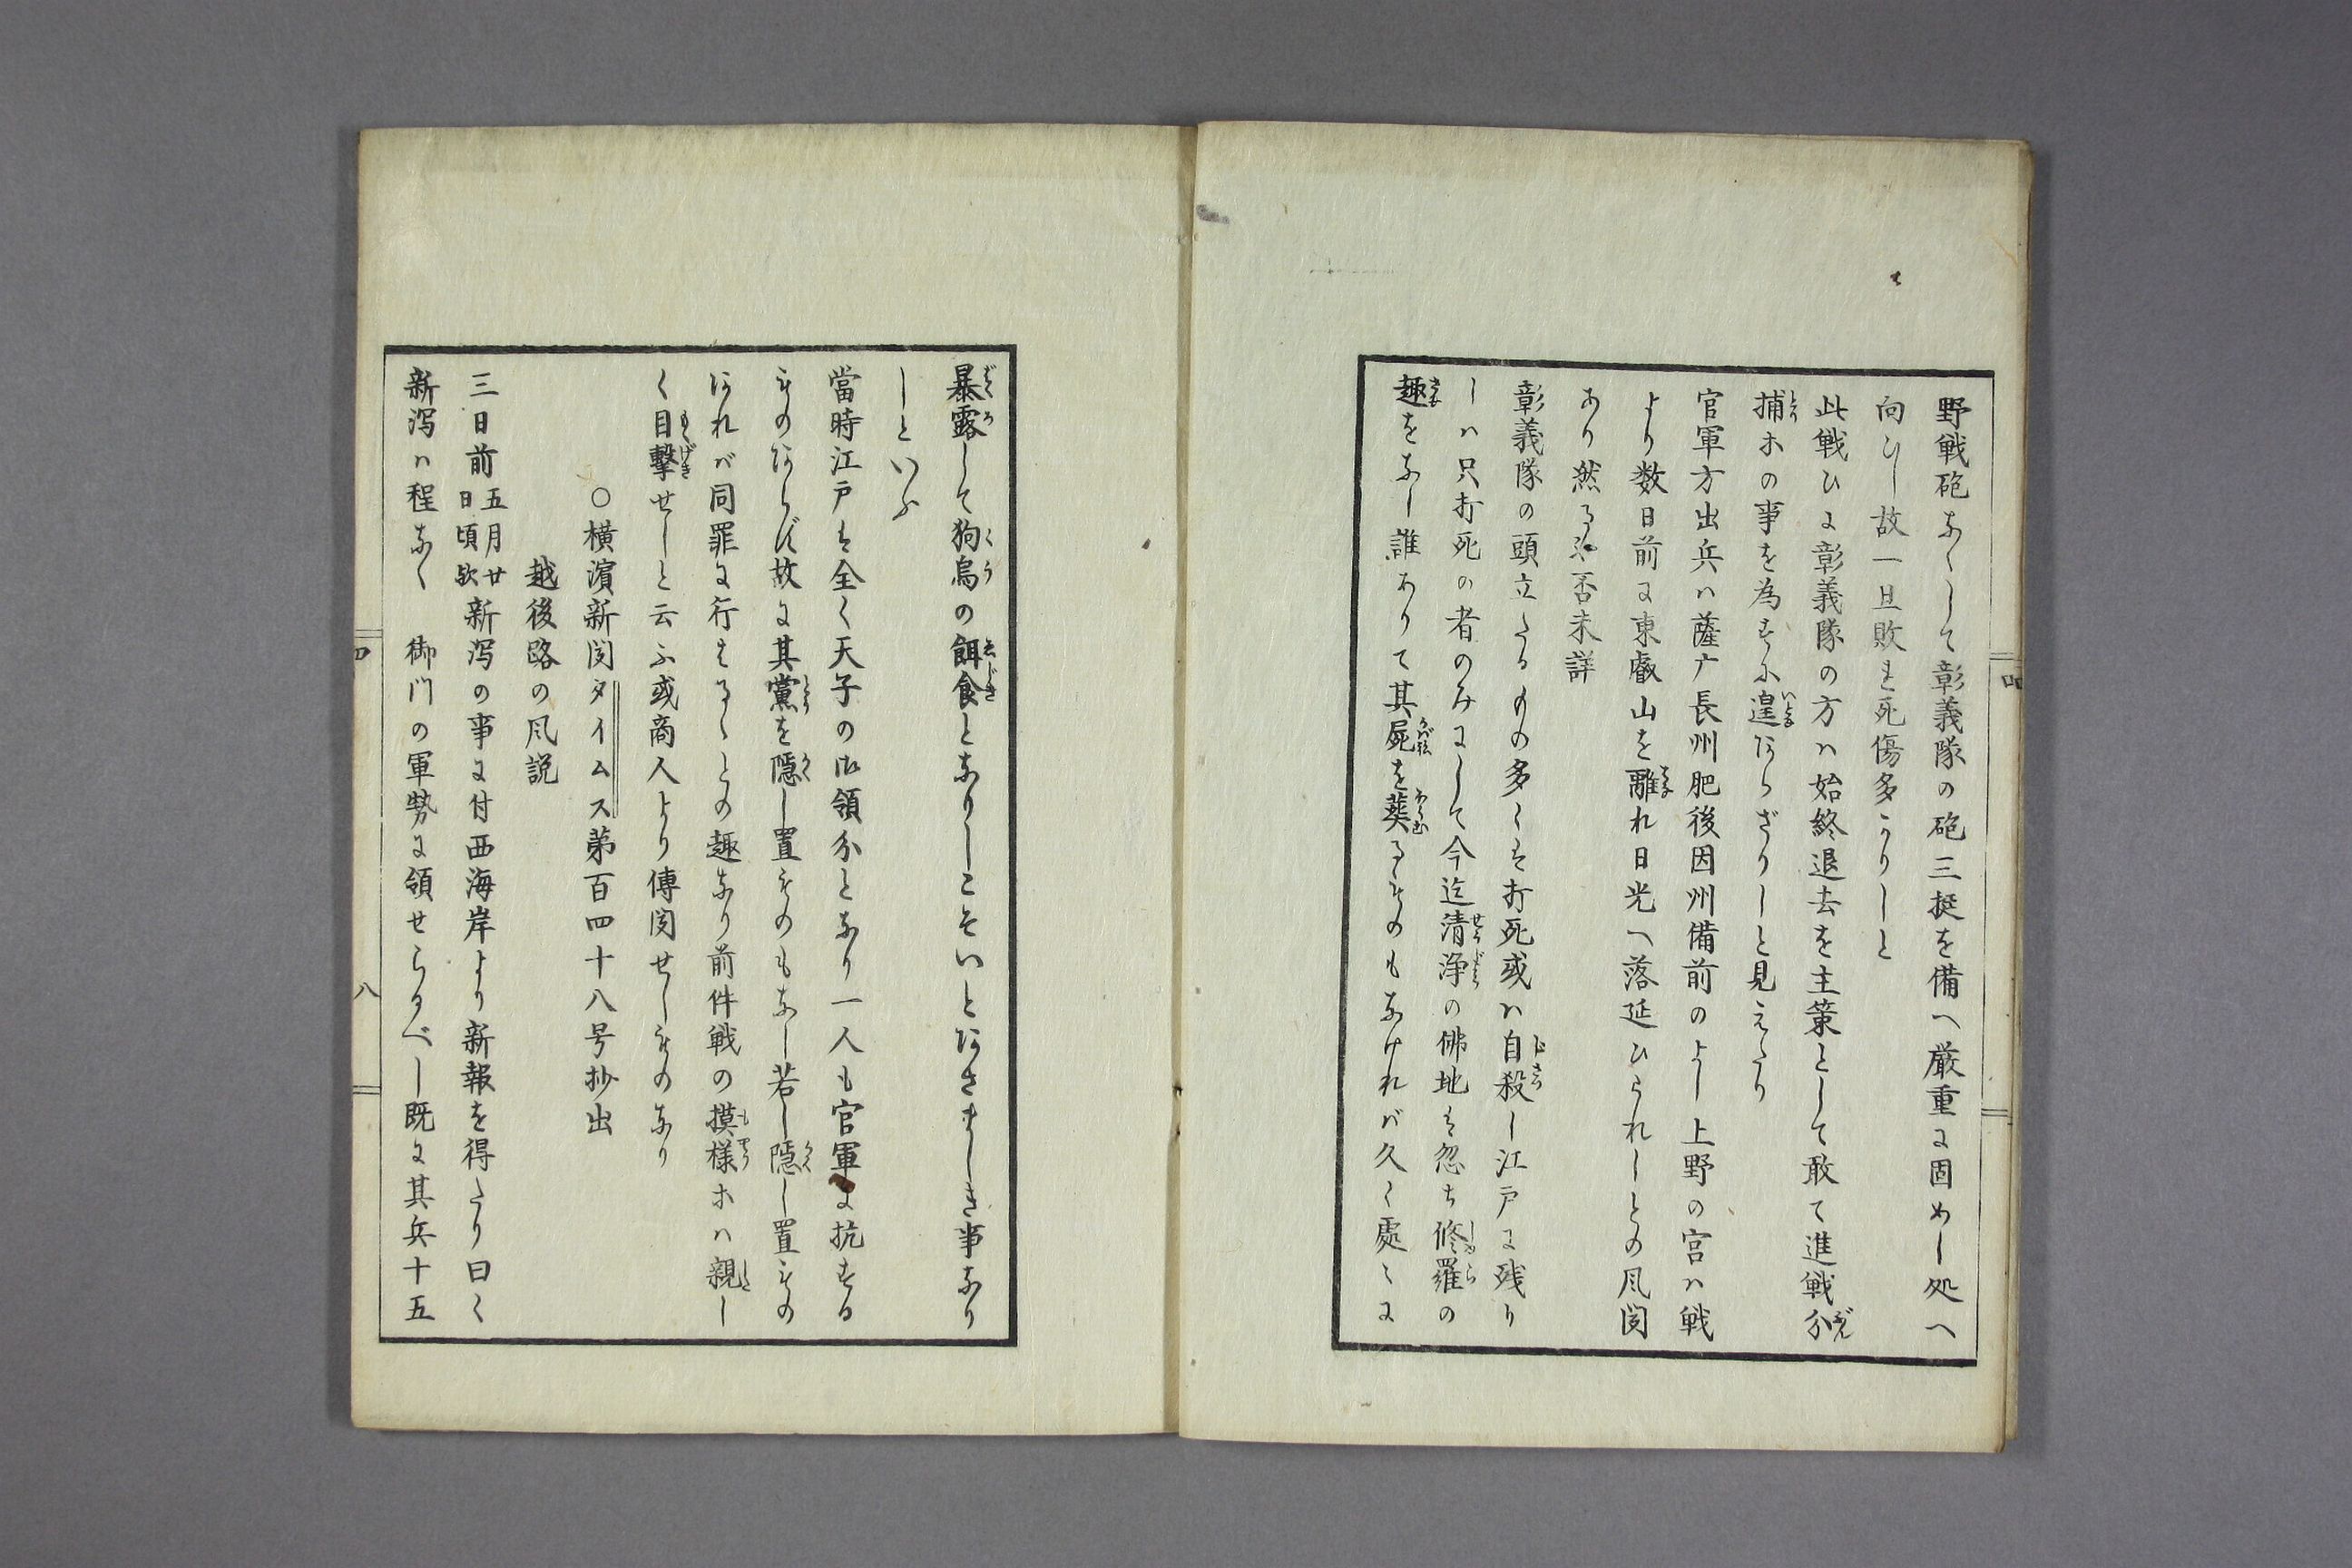 野戦砲なくして彰義隊の砲三挺を備へ厳重に固めし処へ
向ひし故一旦敗れ死傷多かりしと
此戦ひに彰義隊の方ハ始終退去を主策として敢て進戦分
捕ホの事を為すに遑あらざりしと見えたり
官軍方出兵ハ薩广長州肥後因州備前のよし上野の宮ハ戦
より数日前に東叡山を離れ日光へ落延ひられしとの風聞
あり然るや否未詳
彰義隊の頭立たるもの多くは打死或ハ自殺し江戸に残り
しハ只打死の者のみにして今迄清浄の佛地も忽ち修羅の
趣をなし誰ありて其屍を葬るものもなければ久く處々に
暴露して狗烏の餌食となりしこそいとあさましき事なり
しといふ
當時江戸は全く天子の御領分となり一人も官軍に抗する
ものあらず故に其黨を隠し置ものもなし若し隠し置もの
あれバ同罪に行はるゝとの趣なり前件戦の摸様ホハ親し
く目撃せしと云ふ或商人より傳聞せしものなり
○横濱新聞タイムス第百四十八号抄出
越後路の風説
三日前五月廿日頃欤新潟の事に付西海岸より新報を得たり曰く
新潟ハ程なく 御門の軍勢に領せらるべし既に其兵十五
四
八
四